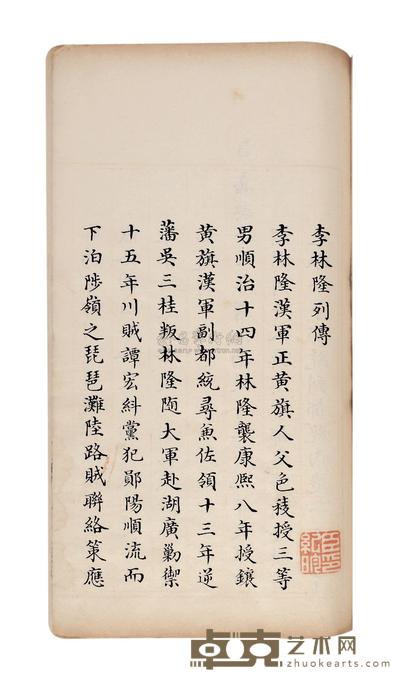 李林隆列傳
李林隆漢軍正黃旗人父色稜授三等
男順治十四年林隆襲康熙八年授鑲
黃旗漢軍副都統尋兼佐領十三年逆
藩吳三桂叛林隆随大軍赴湖廣勦禦
十五年川賊譚宏糾黨犯鄖陽順流而
下泊陟嶺之琵琶灘陸路賊聯絡策應
卓克艺术网
zhuokearts.com